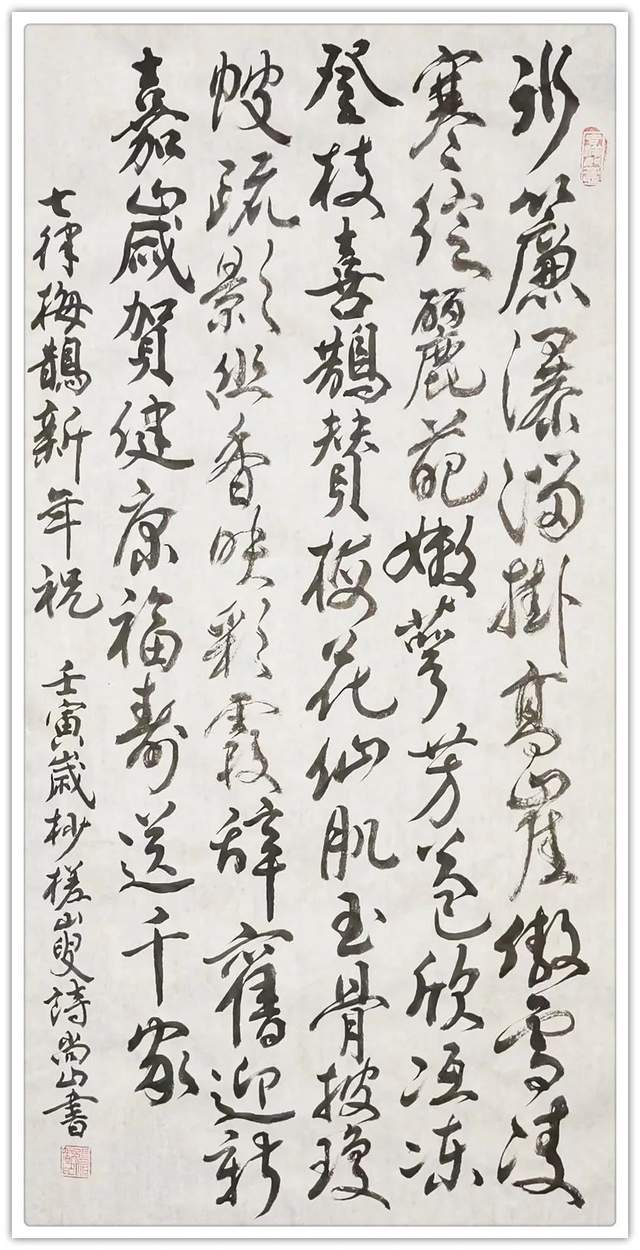 冰簾瀑溜掛高崖傲雪凌
寒綻麗葩嫩萼芳苞欣沍凍
登枝喜鵲贊梅花仙肌玉骨披瓊
幔疏影幽香映彩霞辭舊迎新
嘉歲賀健康福壽送千家
七律梅鵲新年祝 壬寅歲杪槎山叟詩尚山書